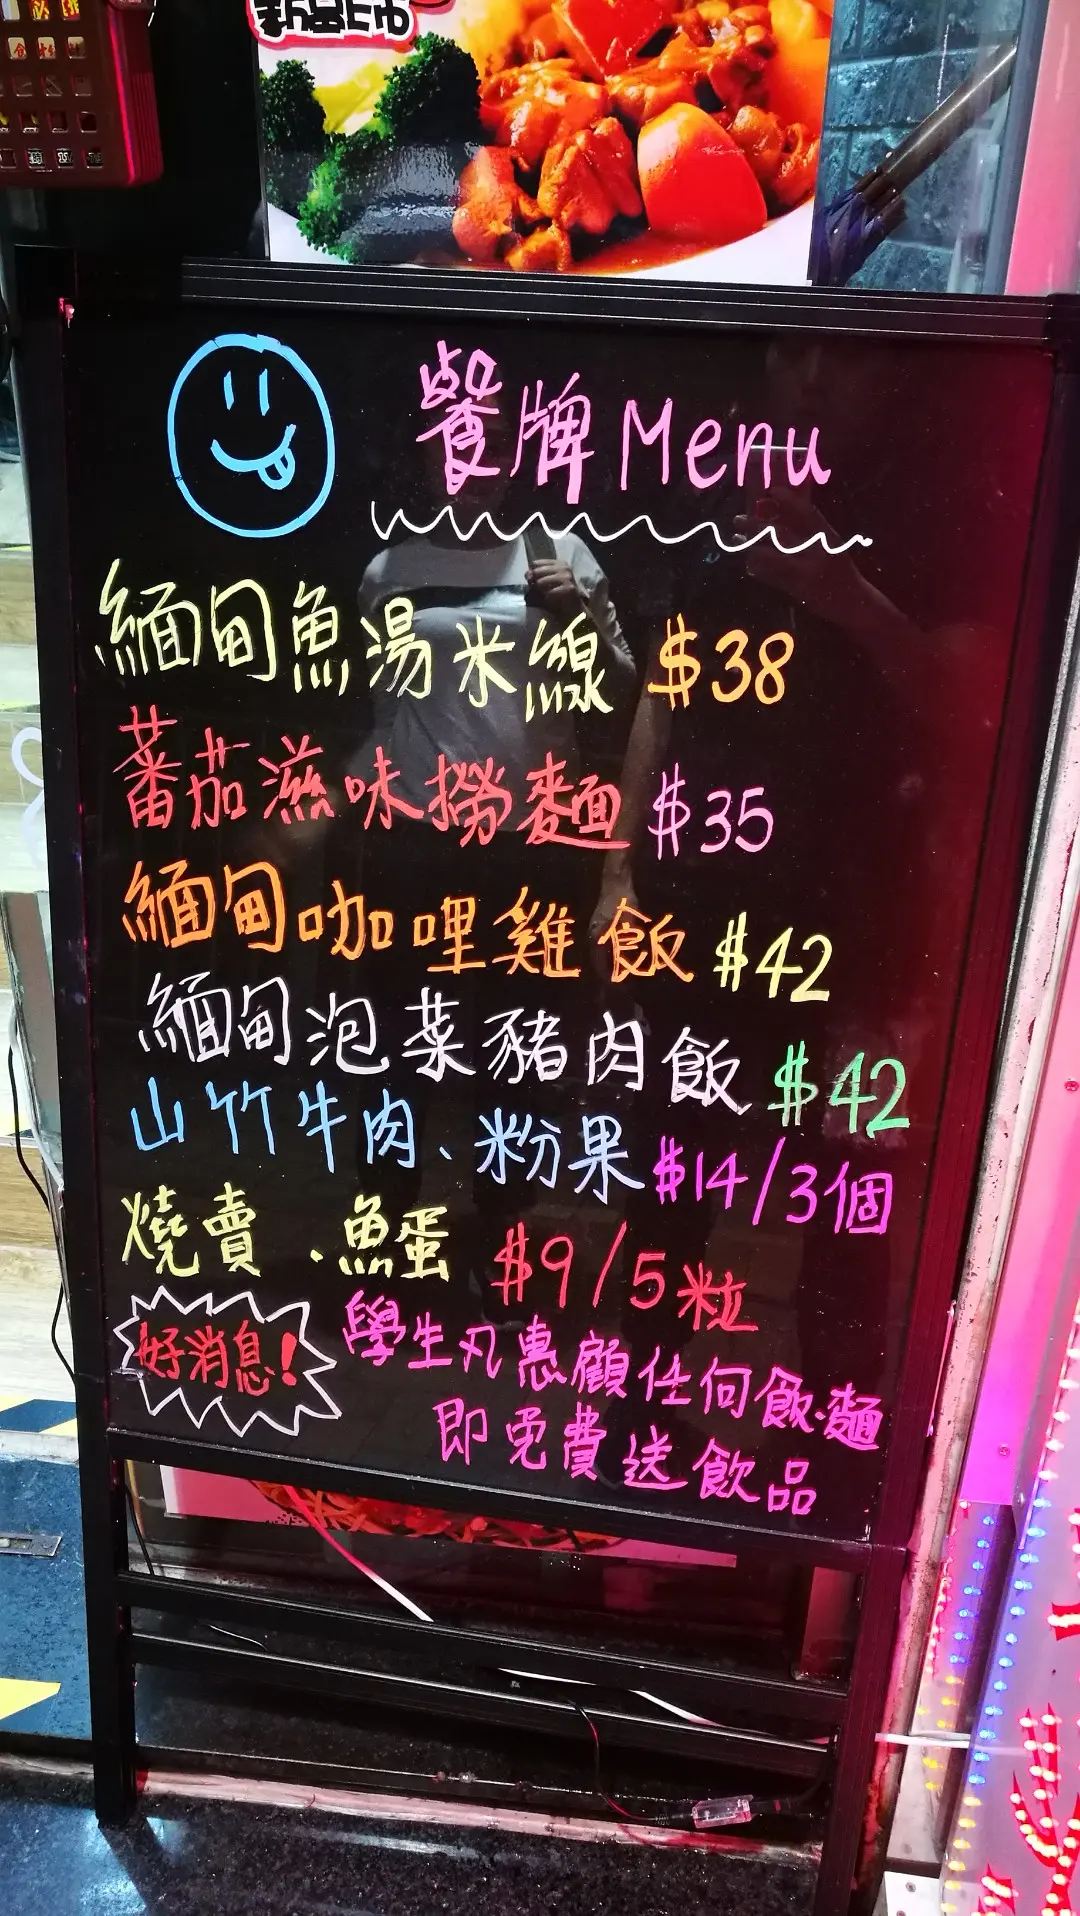 新品上市
餐牌 Menu
緬甸魚湯米線 $38
蕃茄滋味撈麵 $35
緬甸咖哩雞飯 $42
緬甸泡菜豬肉飯 $42
山竹牛肉、粉果 $14/3個
燒賣、魚蛋 $9/5粒
好消息! 學生凡惠顧任何飯.麵
即免費送飲品